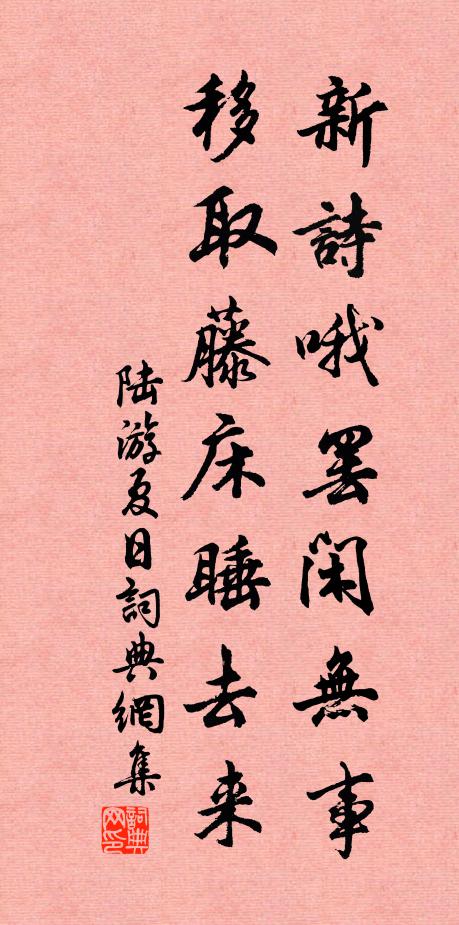 新詩哦罢闲無事
移取藤床睡去来
陆游夏日詞典網集
詞典网印